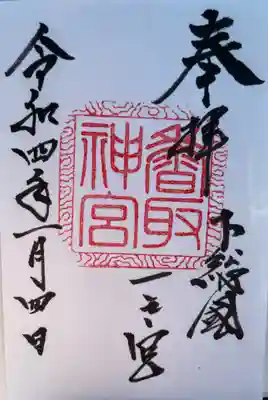 奉拝
下総國
一之宮
香取神宮
令和四年一月四日